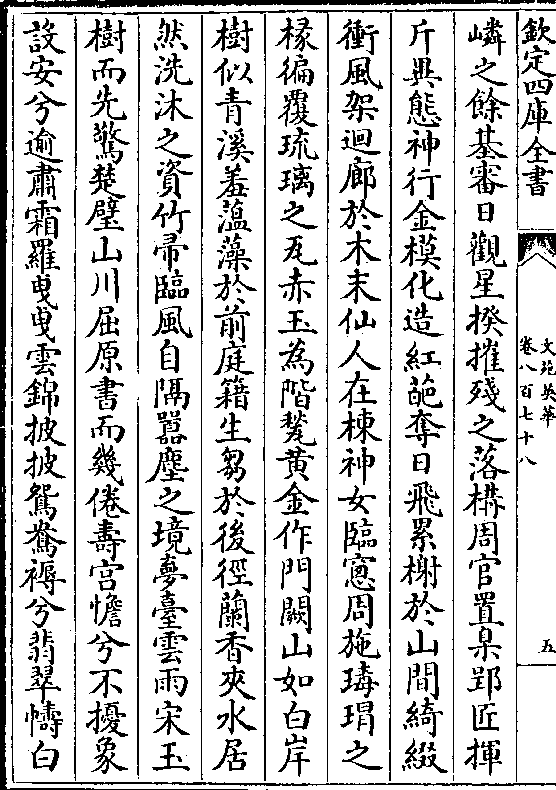 欽定四庫全書
文苑英華
卷八百七十八
五
嶙之餘基審日觀星揆摧殘之落構周官置臬郢匠揮
斤異態神行金模化造紅葩奪日飛累榭於山間綺綴
衝風架迴廊於木末仙人在棟神女臨窻周施瑇瑁之
椽徧覆琉璃之瓦赤玉為階甃黄金作門闕山如白岸
樹似青溪羞薀藻於前庭籍生芻於後徑蘭香夾水居
然洗沐之資竹帚臨風自隔嚚塵之境夢臺雲雨宋玉
樹而先驚楚壁山川屈原書而幾倦壽宫憺兮不擾象
設安兮逾肅霜羅曵曵雲錦披披鴛鴦褥兮翡翠幬白